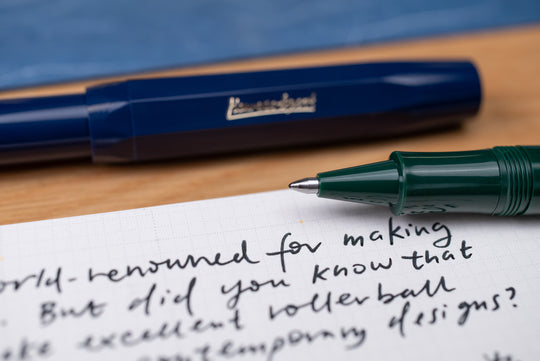 Kaweco
orld-renowned for making
. But did you know that
ke excellent rollerball
contemporary designs?